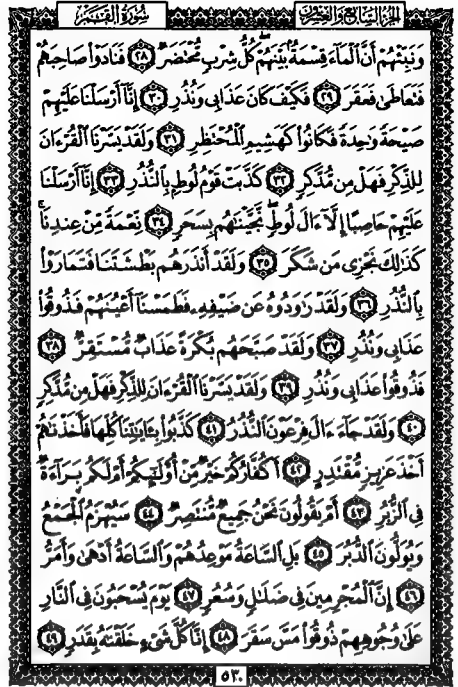 الجزء السابع والعشرون سورة القمر
وَنَبِّئْهُمْ أَنَّ الْمَاءَ قِسْمَةٌ بَيْنَهُمْ كُلُّ شِرْبٍ مُّحْتَضَرٌ ٢٨ فَنَادَوْا صَاحِبَهُمْ
فَتَعَاطَىٰ فَعَقَرَ ٢٩ فَكَيْفَ كَانَ عَذَابِي وَنُذُرِ ٣٠ إِنَّا أَرْسَلْنَا عَلَيْهِمْ
صَيْحَةً وَٰحِدَةً فَكَانُوا كَهَشِيمِ الْمُحْتَظِرِ ٣١ وَلَقَدْ يَسَّرْنَا الْقُرْءَانَ
لِلذِّكْرِ فَهَلْ مِن مُّدَّكِرٍ ٣٢ كَذَّبَتْ قَوْمُ لُوطٍ بِالنُّذُرِ ٣٣ إِنَّا أَرْسَلْنَا
عَلَيْهِمْ حَاصِبًا إِلَّا ءَالَ لُوطٍ نَّجَّيْنَٰهُم بِسَحَرٍ ٣٤ نِّعْمَةً مِّنْ عِندِنَا
كَذَٰلِكَ نَجْزِي مَن شَكَرَ ٣٥ وَلَقَدْ أَنذَرَهُم بَطْشَتَنَا فَتَمَارَوْا
بِالنُّذُرِ ٣٦ وَلَقَدْ رَٰوَدُوهُ عَن ضَيْفِهِۦ فَطَمَسْنَا أَعْيُنَهُمْ فَذُوقُوا
عَذَابِي وَنُذُرِ ٣٧ وَلَقَدْ صَبَّحَهُم بُكْرَةً عَذَابٌ مُّسْتَقِرٌّ ٣٨
فَذُوقُوا عَذَابِي وَنُذُرِ ٣٩ وَلَقَدْ يَسَّرْنَا الْقُرْءَانَ لِلذِّكْرِ فَهَلْ مِن مُّدَّكِرٍ
٤٠ وَلَقَدْ جَاءَ ءَالَ فِرْعَوْنَ النُّذُرُ ٤١ كَذَّبُوا بِـَٔايَٰتِنَا كُلِّهَا فَأَخَذْنَٰهُمْ
أَخْذَ عَزِيزٍ مُّقْتَدِرٍ ٤٢ أَكُفَّارُكُمْ خَيْرٌ مِّنْ أُولَٰئِكُمْ أَمْ لَكُم بَرَاءَةٌ
فِي الزُّبُرِ ٤٣ أَمْ يَقُولُونَ نَحْنُ جَمِيعٌ مُّنتَصِرٌ ٤٤ سَيُهْزَمُ الْجَمْعُ
وَيُوَلُّونَ الدُّبُرَ ٤٥ بَلِ السَّاعَةُ مَوْعِدُهُمْ وَالسَّاعَةُ أَدْهَىٰ وَأَمَرُّ
٤٦ إِنَّ الْمُجْرِمِينَ فِي ضَلَٰلٍ وَسُعُرٍ ٤٧ يَوْمَ يُسْحَبُونَ فِي النَّارِ
عَلَىٰ وُجُوهِهِمْ ذُوقُوا مَسَّ سَقَرَ ٤٨ إِنَّا كُلَّ شَيْءٍ خَلَقْنَٰهُ بِقَدَرٍ ٤٩
٥٣٠